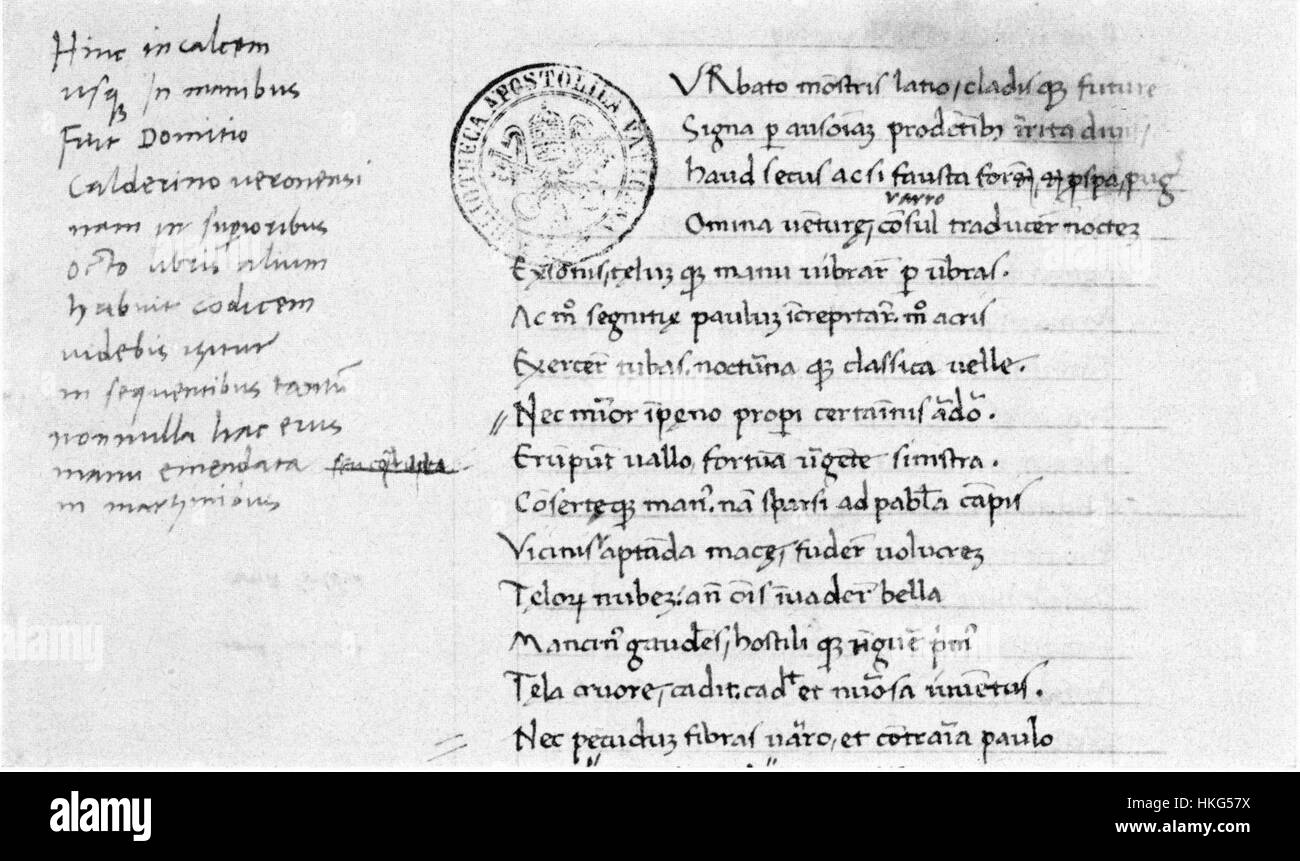 Hinc in calcem
usq; in manibus
Fuit Domitio
Calderino veronensi
nam in supioribus
octo libris alium
habuit codicem
videbis igitur
in sequentibus tantū
nonnulla hac eius
manu emendata
in marginibus
BIBLIOTHECA APOSTOLICA VATICANA
VRbato mōstris latio, cladisqȝ future
Signa p ausoiaȝ prodētibȝ irrita diui,
haud secus ac si fausta forēt, et pspa, pugne
varro
Omina vēturę, cōsul traducerē nocteȝ
Exiōnis, teluȝ qȝ manu uibrar̄ p ūbras.
Ac mō segnitię pauluȝ īcrepitar̄. mō acris
Exercer̄ tubas. noctūna qȝ classica uelle.
Nec mīor īpeno propi certaīnis ādor.
Erūpūt uallo, fortūa ūgēte sinistra.
Cōserteqȝ man⁹. nā sparsi ad pabl̄a cāpis
Vicinis aptāda macę, fuder̄ uolucreȝ
Telorȝ nubeȝ. ān ōīs īuader̄ bella
Mancin⁹ gaudēs, hostili qȝ rīguē prim⁹
Tela cruore, cadit. cadt et nūosa iuuētus.
Nec pecuduȝ fibras uārro, et cōtraīa paulo
alamy
HKG57X
www.alamy.com